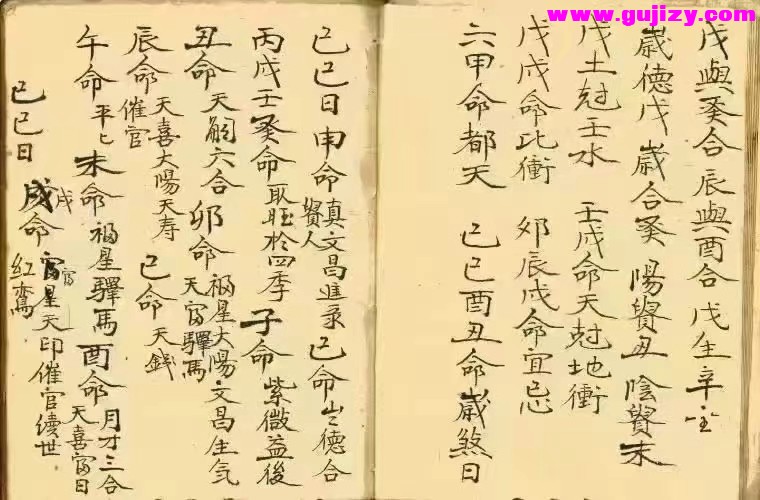 www.gujizy.com
戊與癸合 辰與酉合 戊生辛金
歲德戊 歲合癸 陽貴丑 陰貴未
戊土尅壬水 壬戌命天尅地衝
戊戌命比衝 卯辰戌命宜忌
六甲命都天 己巳酉丑命歲煞日
己巳日 申命 真文昌進彔 貴人 巳命 歲德合
丙戌壬癸命 取旺於四季 子命 紫微益後
丑命 天嗣六合 卯命 福星太陽文昌生气 天官驛馬
辰命 天喜太陽天寿 催官 巳命 天錢
午命 平七 未命 福星驛馬 酉命 月才三合 天喜富日
己巳日 戌命 富星天印催官續世 紅鸞